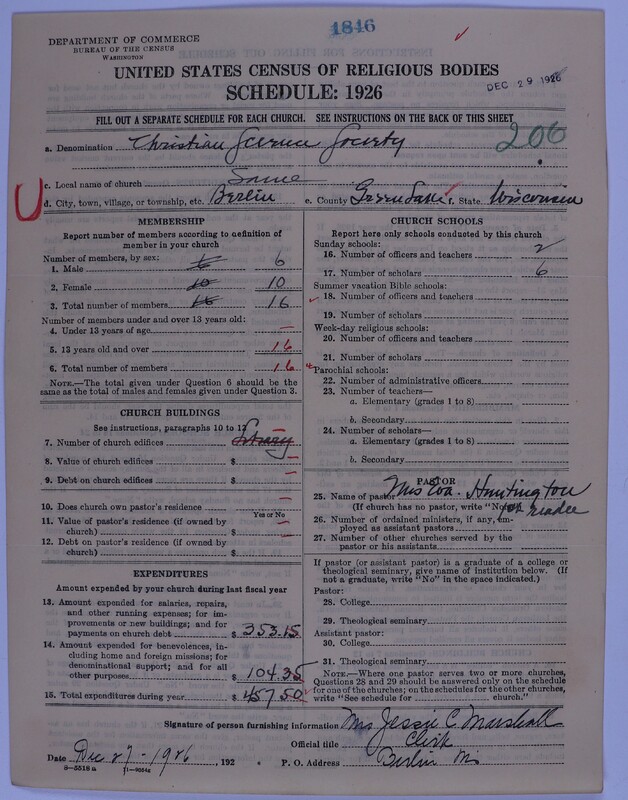 1846
DEPARTMENT OF COMMERCE
BUREAU OF THE CENSUS
WASHINGTON
UNITED STATES CENSUS OF RELIGIOUS BODIES
SCHEDULE: 1926
DEC 29 1926
FILL OUT A SEPARATE SCHEDULE FOR EACH CHURCH. SEE INSTRUCTIONS ON THE BACK OF THIS SHEET
206
a. Denomination Christian Science Society
c. Local name of church Same
d. City, town, village, or township, etc. Berlin e. County Green Lake f. State Wisconsin
MEMBERSHIP
Report number of members according to definition of
member in your church
Number of members, by sex:
1. Male 6 6
2. Female 10 10
3. Total number of members 16 16
Number of members under and over 13 years old:
4. Under 13 years of age —
5. 13 years old and over 16
6. Total number of members 16
NOTE.—The total given under Question 6 should be
the same as the total of males and females given under Question 3.
CHURCH BUILDINGS
See instructions, paragraphs 10 to 12
7. Number of church edifices —
8. Value of church edifices $ —
9. Debt on church edifices $ —
10. Does church own pastor's residence —
Yes or No
11. Value of pastor's residence (if owned by
church) $ —
12. Debt on pastor's residence (if owned by
church) $
EXPENDITURES
Amount expended by your church during last fiscal year
13. Amount expended for salaries, repairs,
and other running expenses; for im-
provements or new buildings; and for
payments on church debt $ 353.15
14. Amount expended for benevolences, in-
cluding home and foreign missions; for
denominational support; and for all
other purposes $ 104.35
15. Total expenditures during year $ 457.50
CHURCH SCHOOLS
Report here only schools conducted by this church
Sunday schools:
16. Number of officers and teachers 2
17. Number of scholars 6
Summer vacation Bible schools:
18. Number of officers and teachers
19. Number of scholars
Week-day religious schools:
20. Number of officers and teachers
21. Number of scholars
Parochial schools:
22. Number of administrative officers
23. Number of teachers—
a. Elementary (grades 1 to 8)
b. Secondary
24. Number of scholars—
a. Elementary (grades 1 to 8)
b. Secondary
PASTOR
25. Name of pastor Mrs Eva Huntington
(If church has no pastor, write "No") reader
26. Number of ordained ministers, if any, em-
ployed as assistant pastors
27. Number of other churches served by the
pastor or his assistants
If pastor (or assistant pastor) is a graduate of a college or
theological seminary, give name of institution below. (If
not a graduate, write "No" in the space indicated.)
Pastor:
28. College
29. Theological seminary
Assistant pastor:
30. College
31. Theological seminary
NOTE.—Where one pastor serves two or more churches,
Questions 28 and 29 should be answered only on the schedule
for one of the churches; on the schedules for the other churches,
write "See schedule for church."
Signature of person furnishing information Mrs Jessie C. Marshall
Official title Clerk
Date Dec 27-1926, 192 . P. O. Address Berlin Wis
8-5518 a